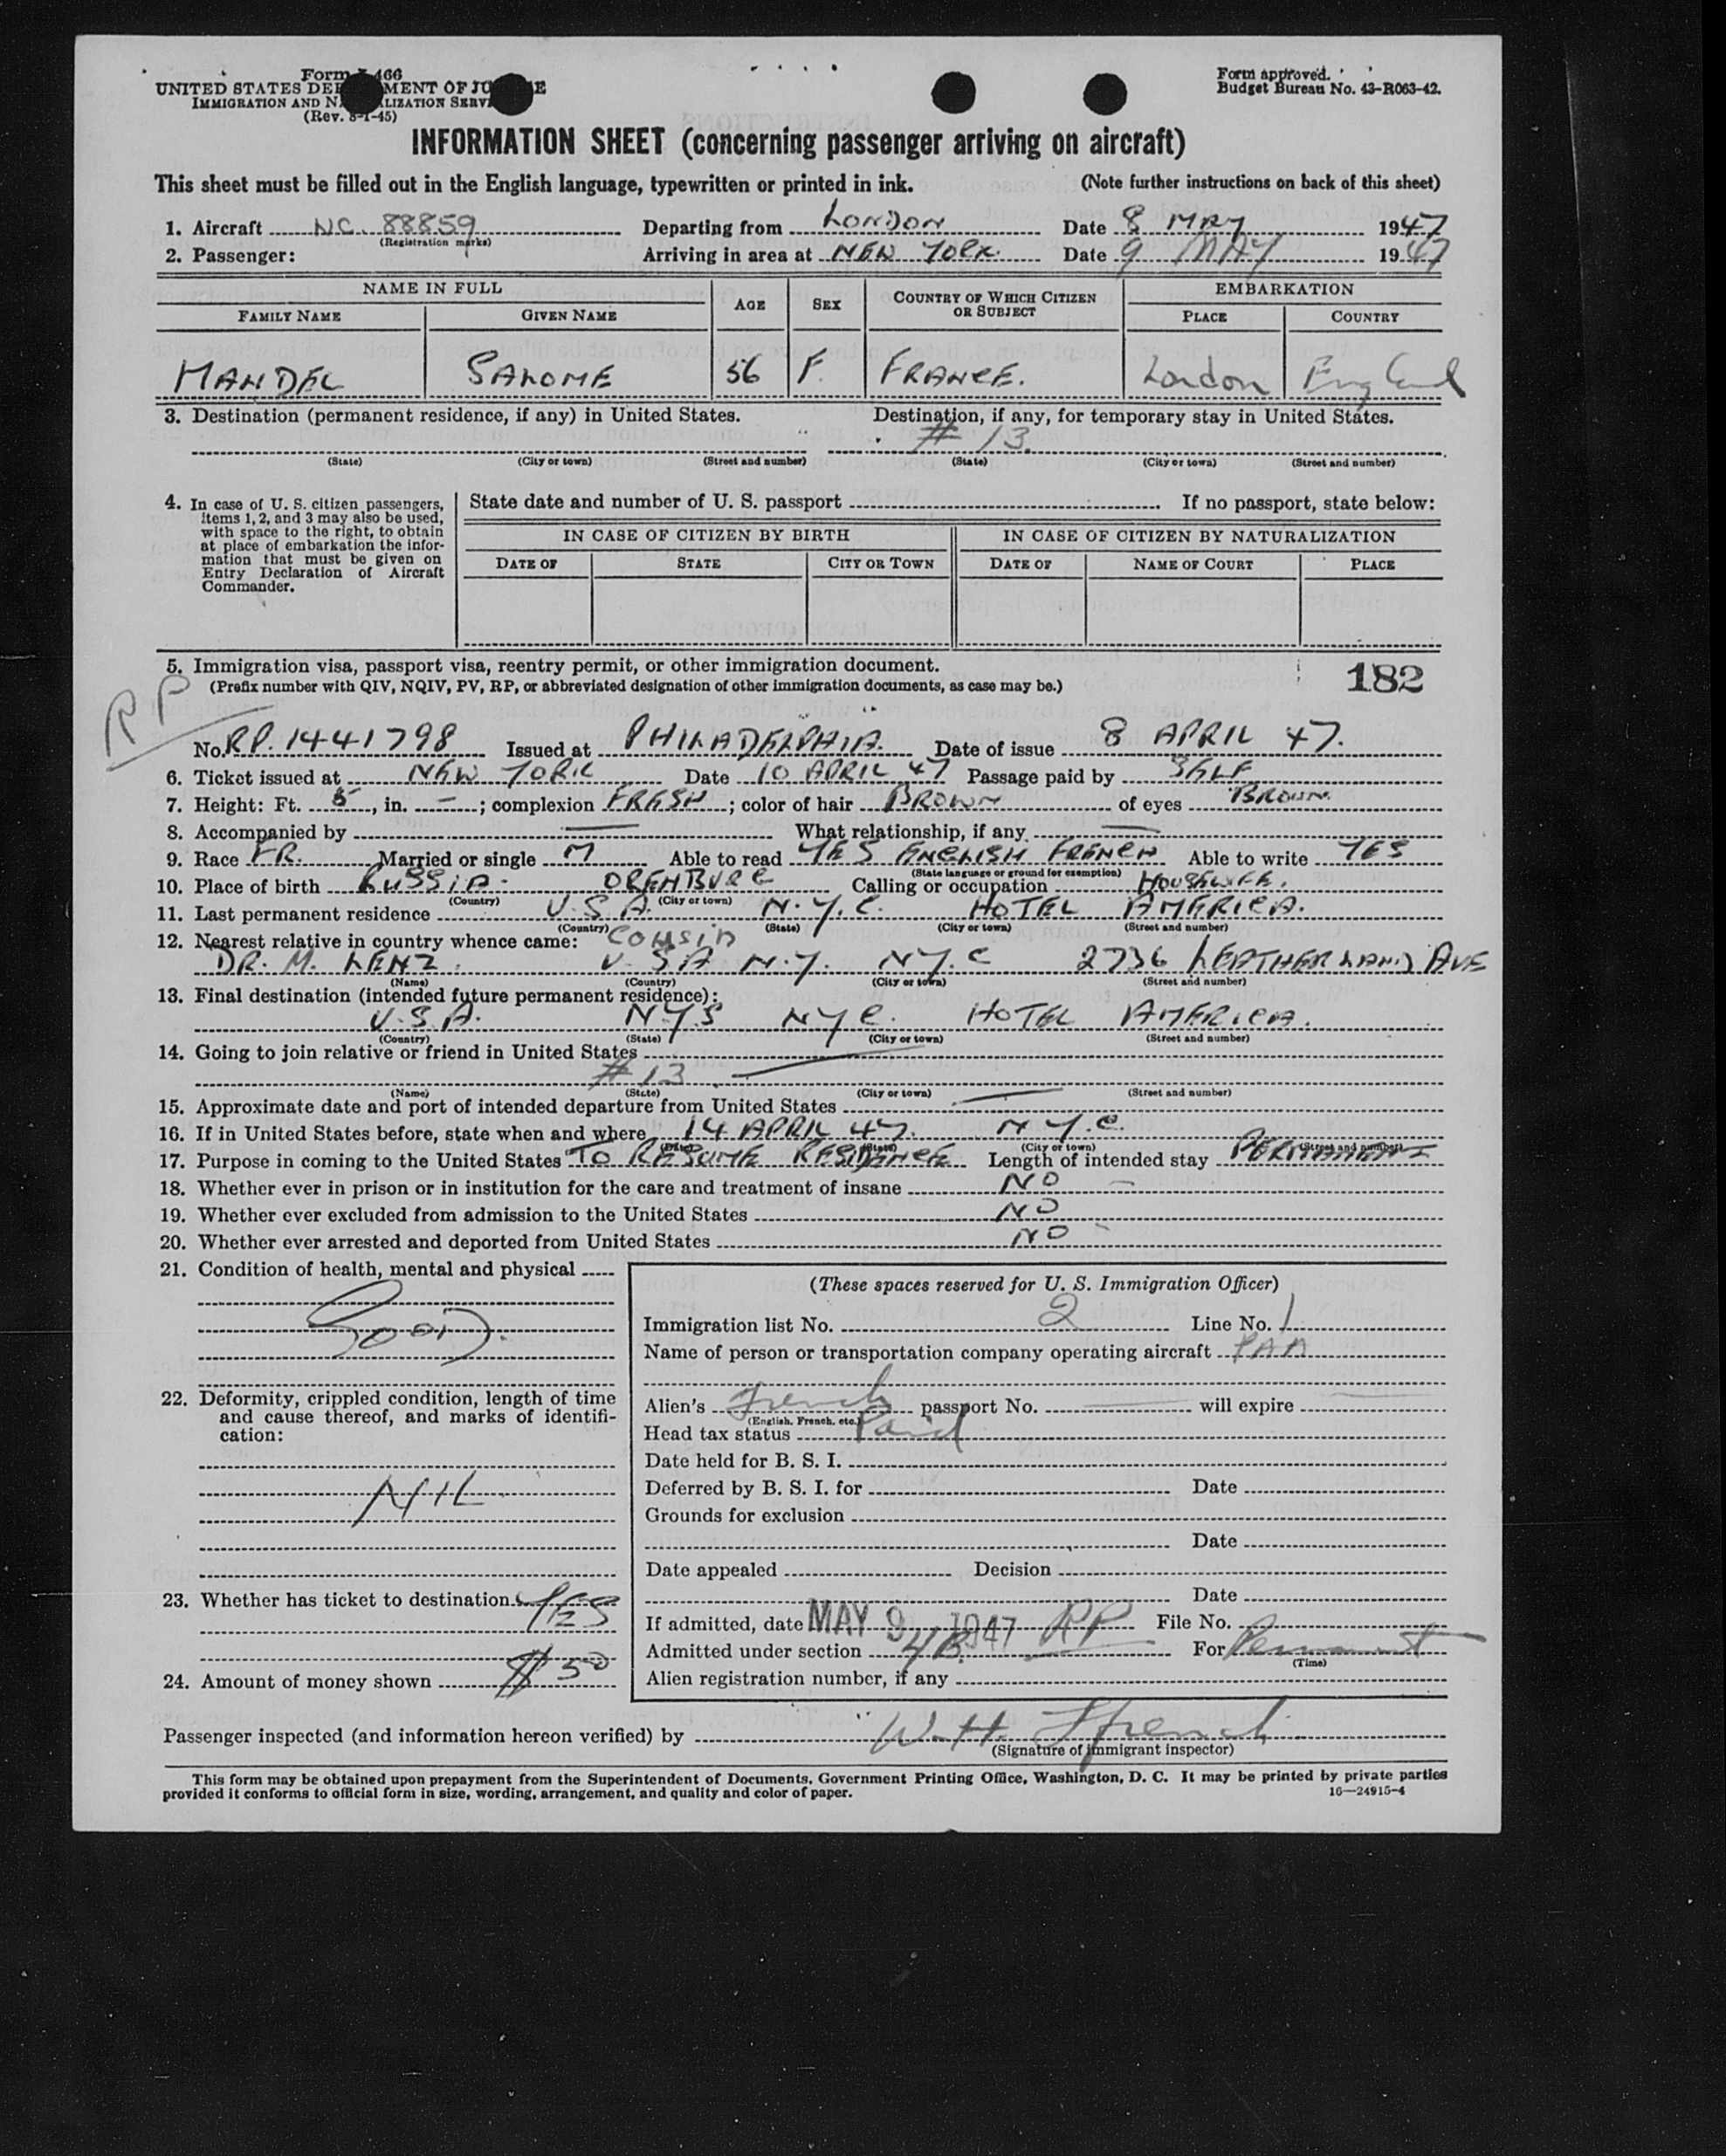 Form I-466
UNITED STATES DEPARTMENT OF JUSTICE
IMMIGRATION AND NATURALIZATION SERVICE
(Rev. 8-1-45)
Form approved.
Budget Bureau No. 43-R063-42.
INFORMATION SHEET (concerning passenger arriving on aircraft)
This sheet must be filled out in the English language, typewritten or printed in ink. (Note further instructions on back of this sheet)
1. Aircraft NC. 88859 Departing from LONDON Date 8 MAY 1947
(Registration marks)
2. Passenger: Arriving in area at NEW YORK. Date 9 MAY 1947
NAME IN FULL AGE SEX COUNTRY OF WHICH CITIZEN OR SUBJECT EMBARKATION
FAMILY NAME GIVEN NAME PLACE COUNTRY
MANDEL SALOME 56 F. FRANCE. London England
3. Destination (permanent residence, if any) in United States. Destination, if any, for temporary stay in United States.
# 13.
(State) (City or town) (Street and number) (State) (City or town) (Street and number)
4. In case of U. S. citizen passengers, items 1, 2, and 3 may also be used, with space to the right, to obtain at place of embarkation the information that must be given on Entry Declaration of Aircraft Commander.
State date and number of U. S. passport If no passport, state below:
IN CASE OF CITIZEN BY BIRTH IN CASE OF CITIZEN BY NATURALIZATION
DATE OF STATE CITY OR TOWN DATE OF NAME OF COURT PLACE
5. Immigration visa, passport visa, reentry permit, or other immigration document.
(Prefix number with QIV, NQIV, PV, RP, or abbreviated designation of other immigration documents, as case may be.)
182
RP
No. RP. 1441798 Issued at PHILADELPHIA. Date of issue 8 APRIL 47.
6. Ticket issued at NEW YORK Date 10 APRIL 47 Passage paid by SELF
7. Height: Ft. 5, in. —; complexion FRESH; color of hair BROWN of eyes BROWN
8. Accompanied by — What relationship, if any —
9. Race FR. Married or single M Able to read YES ENGLISH FRENCH Able to write YES
(State language or ground for exemption)
10. Place of birth RUSSIA. ORENBURG Calling or occupation HOUSEWIFE.
(Country) (City or town)
11. Last permanent residence U.S.A. N.Y.C. HOTEL AMERICA.
(Country) (State) (City or town) (Street and number)
12. Nearest relative in country whence came: Cousin
DR. M. LENZ. U.S.A N.Y. N.Y.C 2736 AVE
(Name) (Country) (City or town) (Street and number)
13. Final destination (intended future permanent residence):
U.S.A. NYS NYC. HOTEL AMERICA.
(Country) (State) (City or town) (Street and number)
14. Going to join relative or friend in United States
# 13 —
(Name) (State) (City or town) (Street and number)
15. Approximate date and port of intended departure from United States —
16. If in United States before, state when and where 14 APRIL 47. N.Y.C.
(Date) (State) (City or town) (Street and number)
17. Purpose in coming to the United States TO RESUME RESIDENCE Length of intended stay PERMANENT
18. Whether ever in prison or in institution for the care and treatment of insane NO
19. Whether ever excluded from admission to the United States NO
20. Whether ever arrested and deported from United States NO
21. Condition of health, mental and physical
GOOD.
22. Deformity, crippled condition, length of time and cause thereof, and marks of identification:
NIL
23. Whether has ticket to destination YES
24. Amount of money shown $50
(These spaces reserved for U. S. Immigration Officer)
Immigration list No. 2 Line No. 1
Name of person or transportation company operating aircraft PAA
Alien's French passport No. — will expire —
(English, French, etc.)
Head tax status Paid
Date held for B. S. I.
Deferred by B. S. I. for Date
Grounds for exclusion
Date
Date appealed Decision
Date
If admitted, date MAY 9 1947 RP File No.
Admitted under section 4B. For Permanent
(Time)
Alien registration number, if any
Passenger inspected (and information hereon verified) by W. H. Ffrench
(Signature of immigrant inspector)
This form may be obtained upon prepayment from the Superintendent of Documents, Government Printing Office, Washington, D. C. It may be printed by private parties
provided it conforms to official form in size, wording, arrangement, and quality and color of paper. 16—24915-4